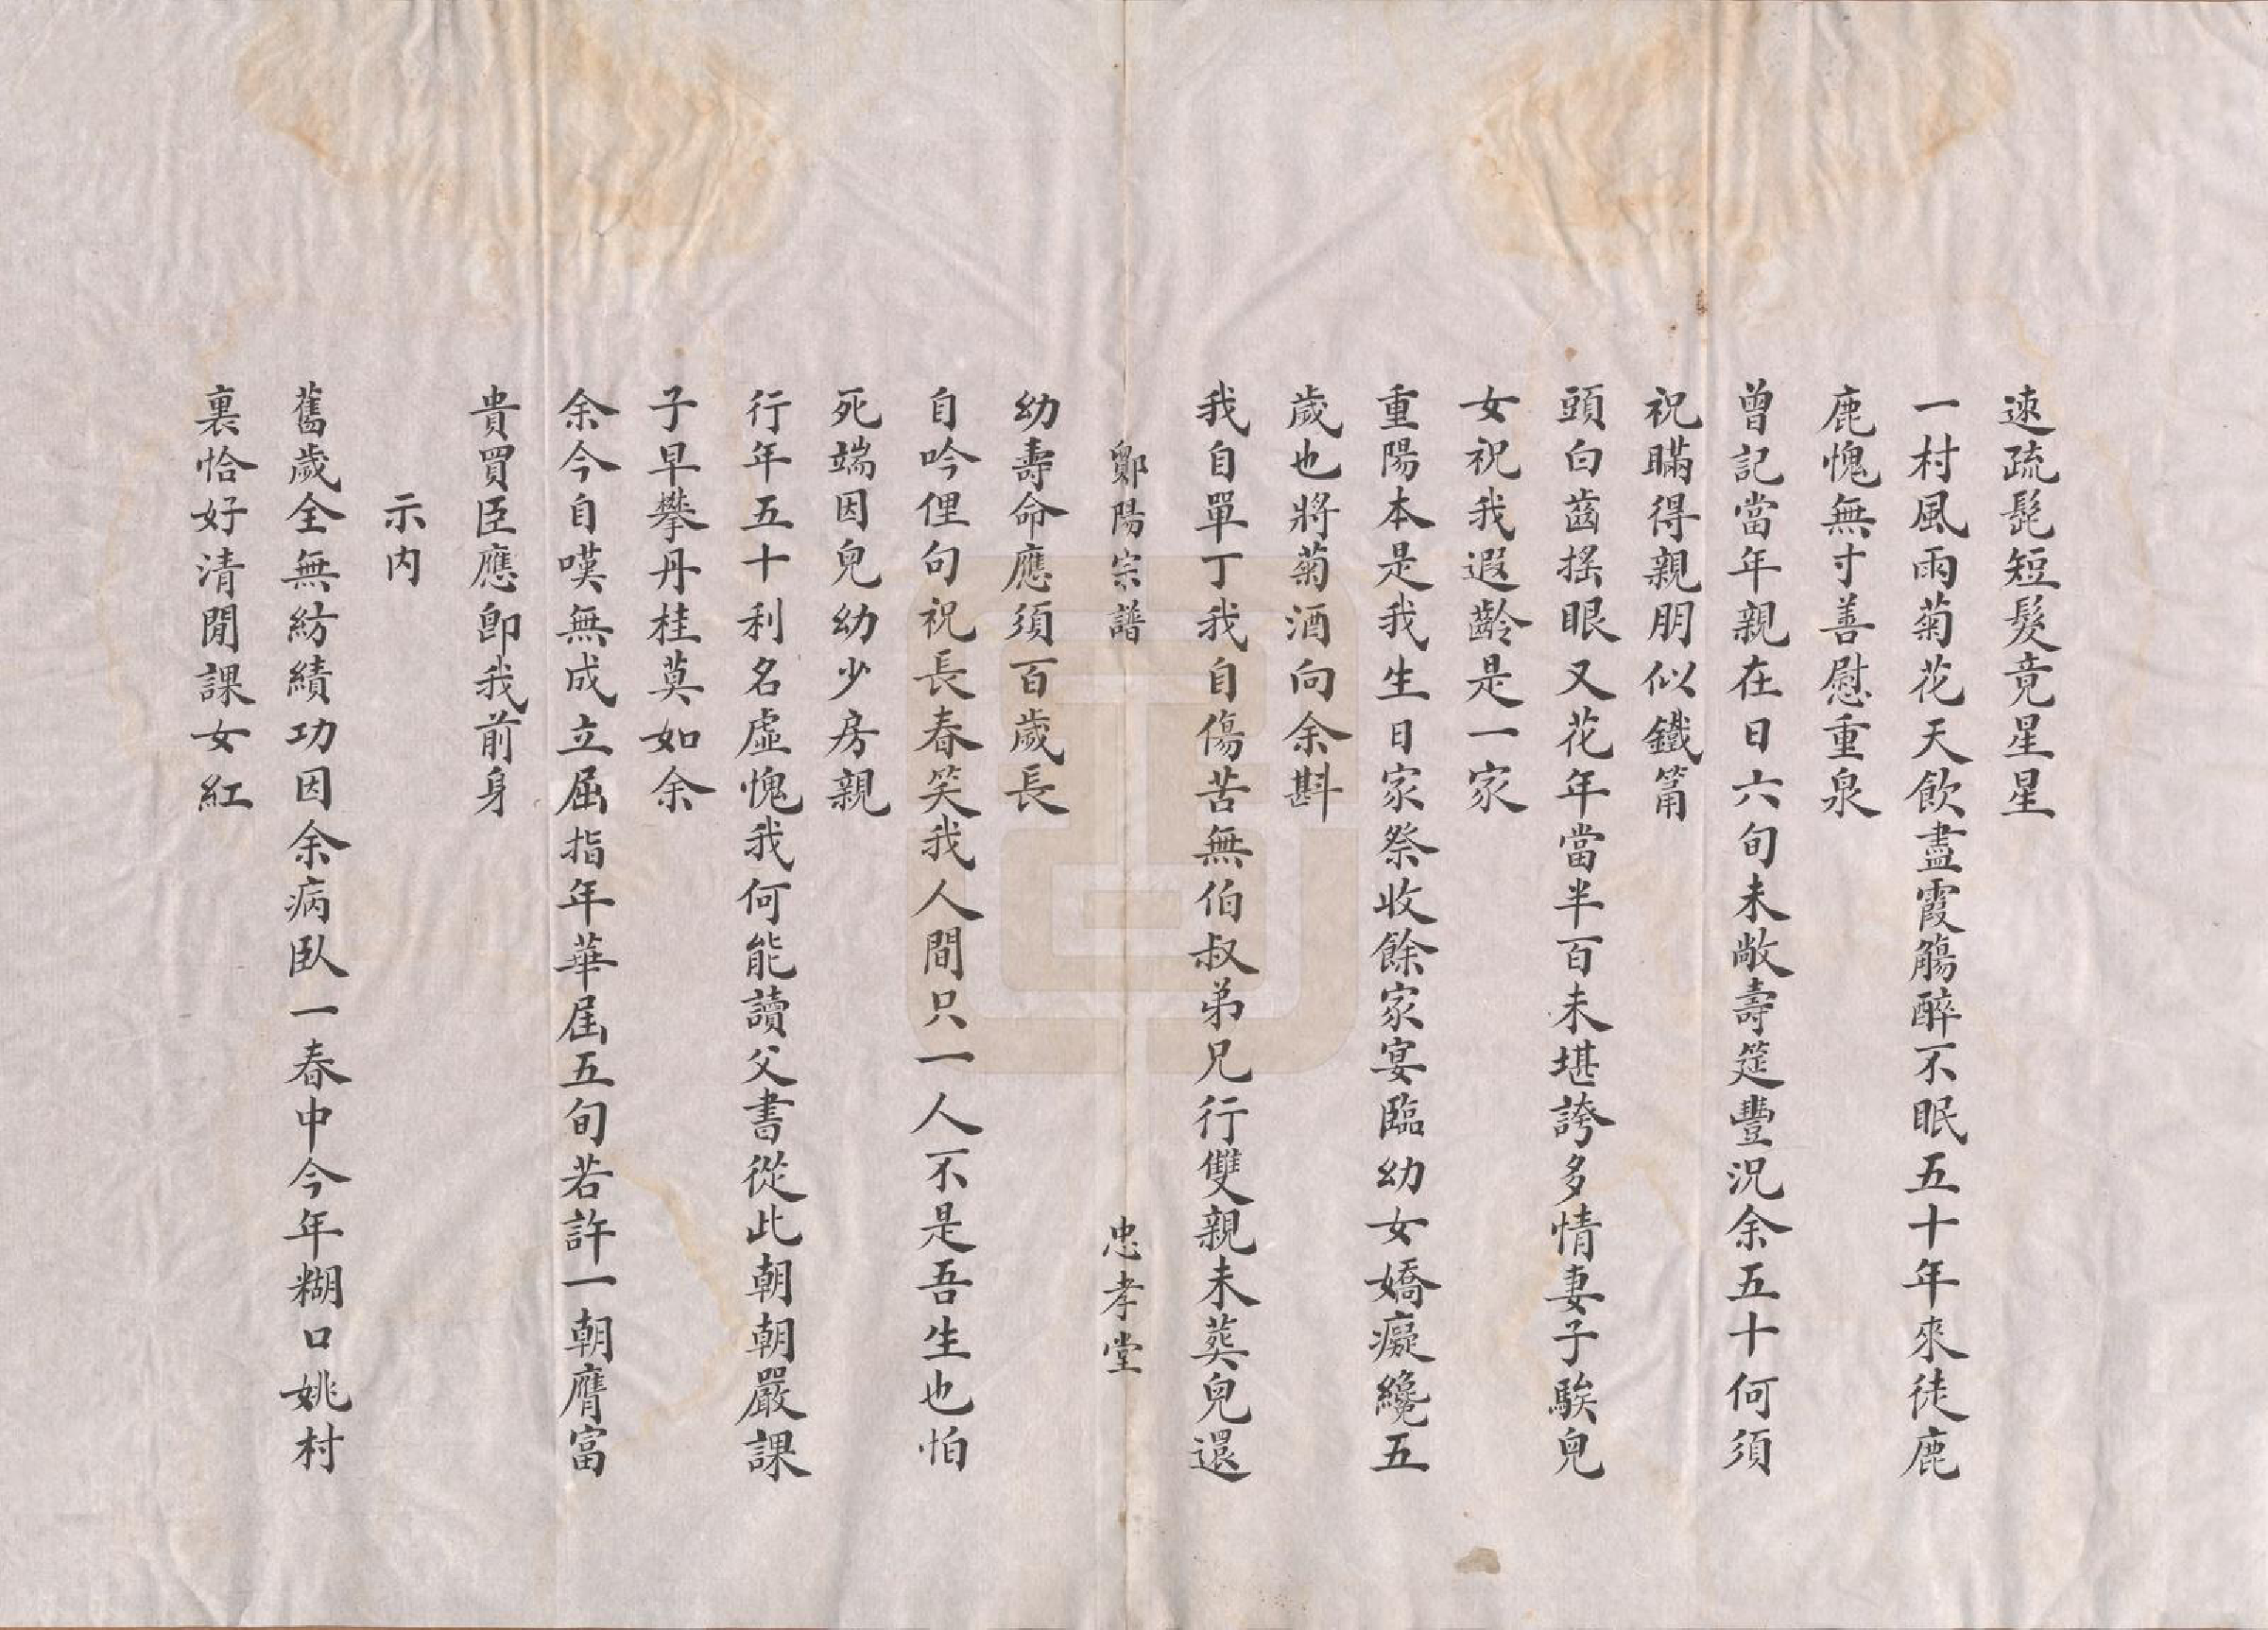 速疏髭短髮竟星星
一村風雨菊花天飲盡霞觴醉不眠五十年來徒鹿
鹿愧無寸善慰重泉
曾記當年親在日六旬未敞壽筵豐況余五十何須
祝瞞得親朋似鐵筩
頭白齒搖眼又花年當半百未堪誇多情妻子騃兒
女祝我遐齡是一家
重陽本是我生日家祭收餘家宴臨幼女嬌癡纔五
歲也將菊酒向余斟
我自單丁我自傷苦無伯叔弟兄行雙親未葬兒還
鄭陽宗譜 忠孝堂
幼壽命應須百歲長
自吟俚句祝長春笑我人間只一人不是吾生也怕
死端因兒幼少房親
行年五十利名虛愧我何能讀父書從此朝朝嚴課
子早攀丹桂莫如余
余今自嘆無成立屈指年華屆五旬若許一朝膺富
貴買臣應卽我前身
示内
舊歲全無紡績功因余病臥一春中今年糊口姚村
裏恰好清閒課女紅